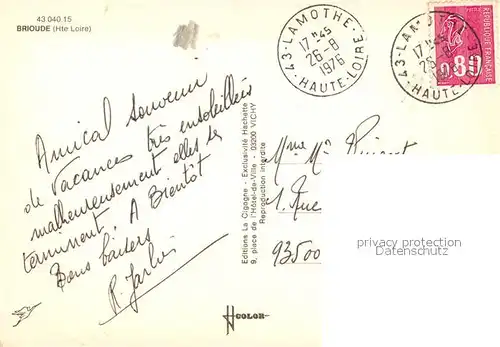 43 040.15
BRIOUDE (Hte Loire)
Amical souvenir
de Vacances très ensoleillées
malheureusement elles se
terminent. A Bientôt
Bons baisers
Editions La Cigogne - Exclusivité Hachette
9, place de l'Hôtel-de-Ville - 03200 VICHY
Reproduction interdite
COLOR
43-LAMOTHE-
17H45
26-8
1976
HAUTE-LOIRE
43-LAM
17H45
26-8
HAUTE-
REPUBLIQUE FRANÇAISE
0.80
Mme Mr
1. Rue
93500
privacy protection
Datenschutz